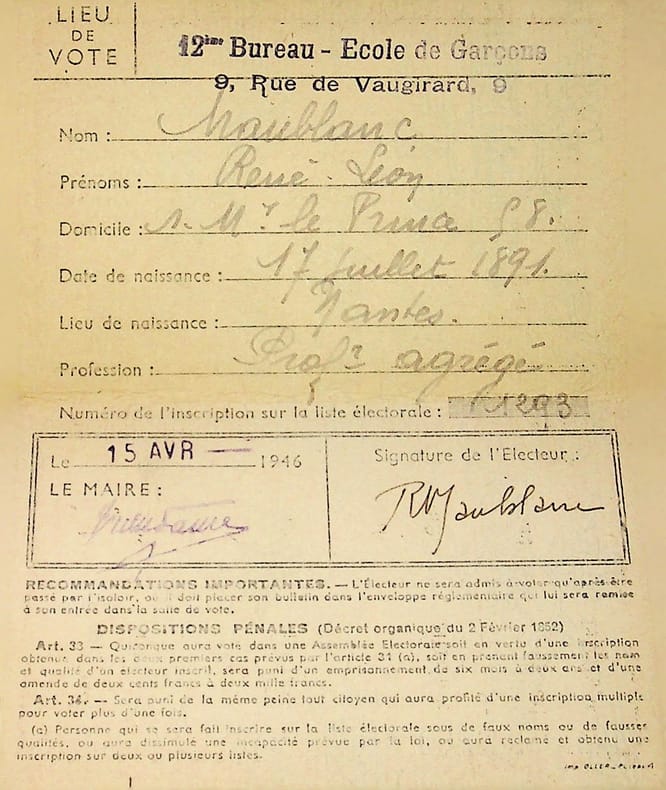 LIEU
DE
VOTE
12ème Bureau - Ecole de Garçons
9, Rue de Vaugirard, 9
Nom : Maublanc
Prénoms : René-Léon
Domicile : r. Mr le Prince 58.
Date de naissance : 17 juillet 1891.
Lieu de naissance : Nantes.
Profession : Profr agrégé
Numéro de l'inscription sur la liste électorale : 1293
Le 15 AVR 1946
LE MAIRE :
Signature de l'Electeur :
RMaublanc
RECOMMANDATIONS IMPORTANTES. — L'Électeur ne sera admis à voter qu'après être
passé par l'isoloir, où il doit placer son bulletin dans l'enveloppe réglementaire qui lui sera remise
à son entrée dans la salle de vote.
DISPOSITIONS PÉNALES (Décret organique du 2 Février 1852)
Art. 33 — Quiconque aura voté dans une Assemblée Electorale soit en vertu d'une inscription
obtenue dans les deux premiers cas prévus par l'article 31 (a), soit en prenant faussement les nom
et qualité d'un électeur inscrit, sera puni d'un emprisonnement de six mois à deux ans et d'une
amende de deux cents francs à deux mille francs.
Art. 34. — Sera puni de la même peine tout citoyen qui aura profité d'une inscription multiple
pour voter plus d'une fois.
(a) Personne qui se sera fait inscrire sur la liste électorale sous de faux noms ou de fausses
qualités, ou aura dissimulé une incapacité prévue par la loi, ou aura réclamé et obtenu une
inscription sur deux ou plusieurs listes.